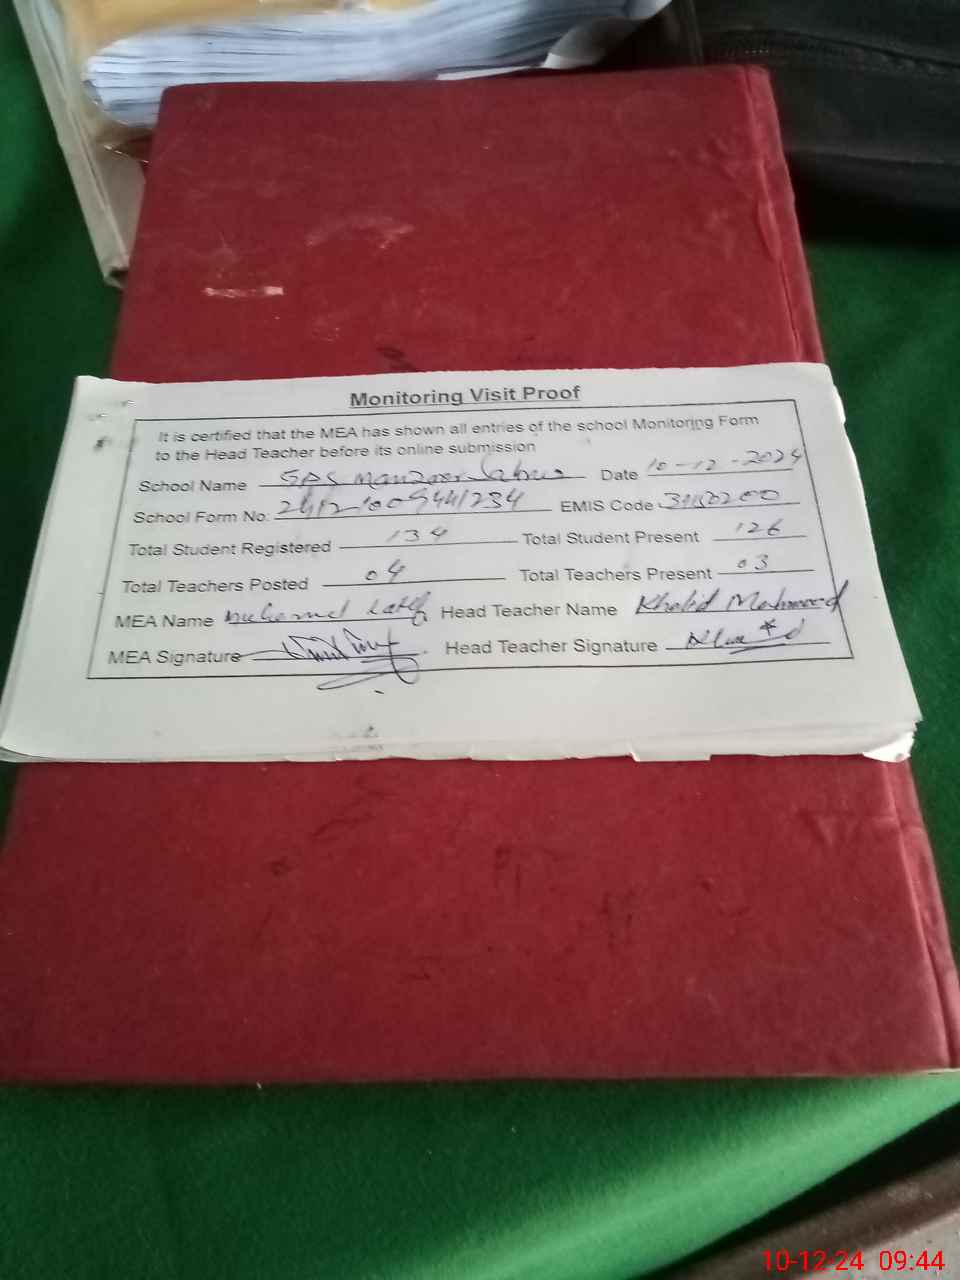 Monitoring Visit Proof
It is certified that the MEA has shown all entries of the school Monitoring Form
to the Head Teacher before its online submission
School Name GPS Manzoor Date 10-12-2024
School Form No. EMIS Code
Total Student Registered 134 Total Student Present 126
Total Teachers Posted 04 Total Teachers Present 03
MEA Name Head Teacher Name Khalid Mahmood
MEA Signature Head Teacher Signature
10-12-24 09:44